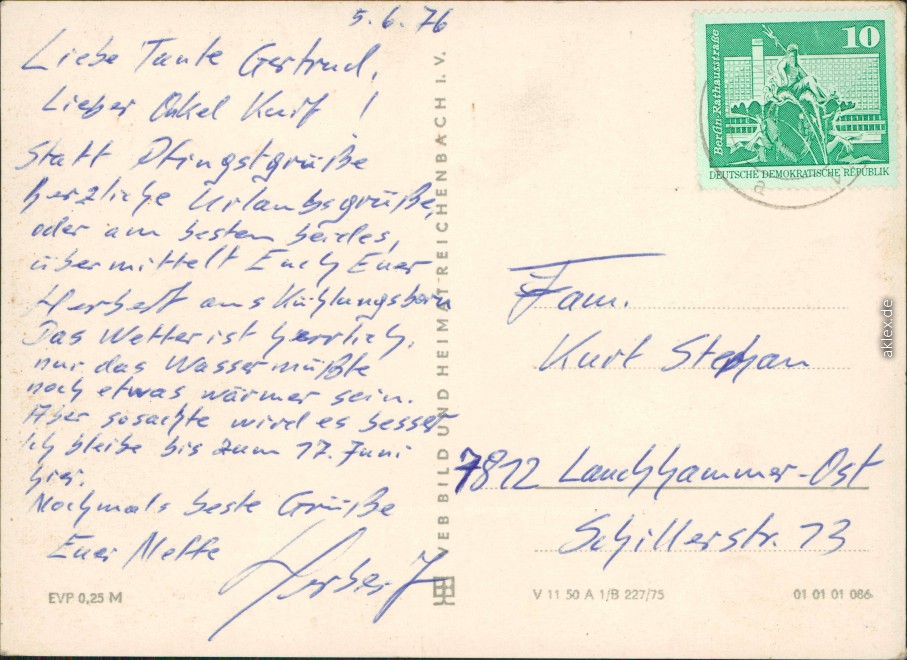 5.6.76
Liebe Tante Gertrud,
Lieber Onkel Kurt!
Statt Pfingstgrüße
herzliche Urlaubsgrüße,
oder am besten beides,
übermittelt Euch Euer
Herbert aus Kühlungsborn
Das Wetter ist herrlich,
nur das Wasser müßte
noch etwas wärmer sein.
Aber sosachte wird es besser
Ich bleibe bis zum 17. Juni
hier.
Nochmals beste Grüße
Euer Neffe
Herbert
EVP 0,25 M
VEB BILD UND HEIMAT REICHENBACH I. V.
Berlin-Rathausstraße
10
DEUTSCHE DEMOKRATISCHE REPUBLIK
Fam.
Kurt Stephan
7812 Lauchhammer-Ost
Schillerstr. 13
V 11 50 A 1/B 227/75
01 01 01 086
aklex.de